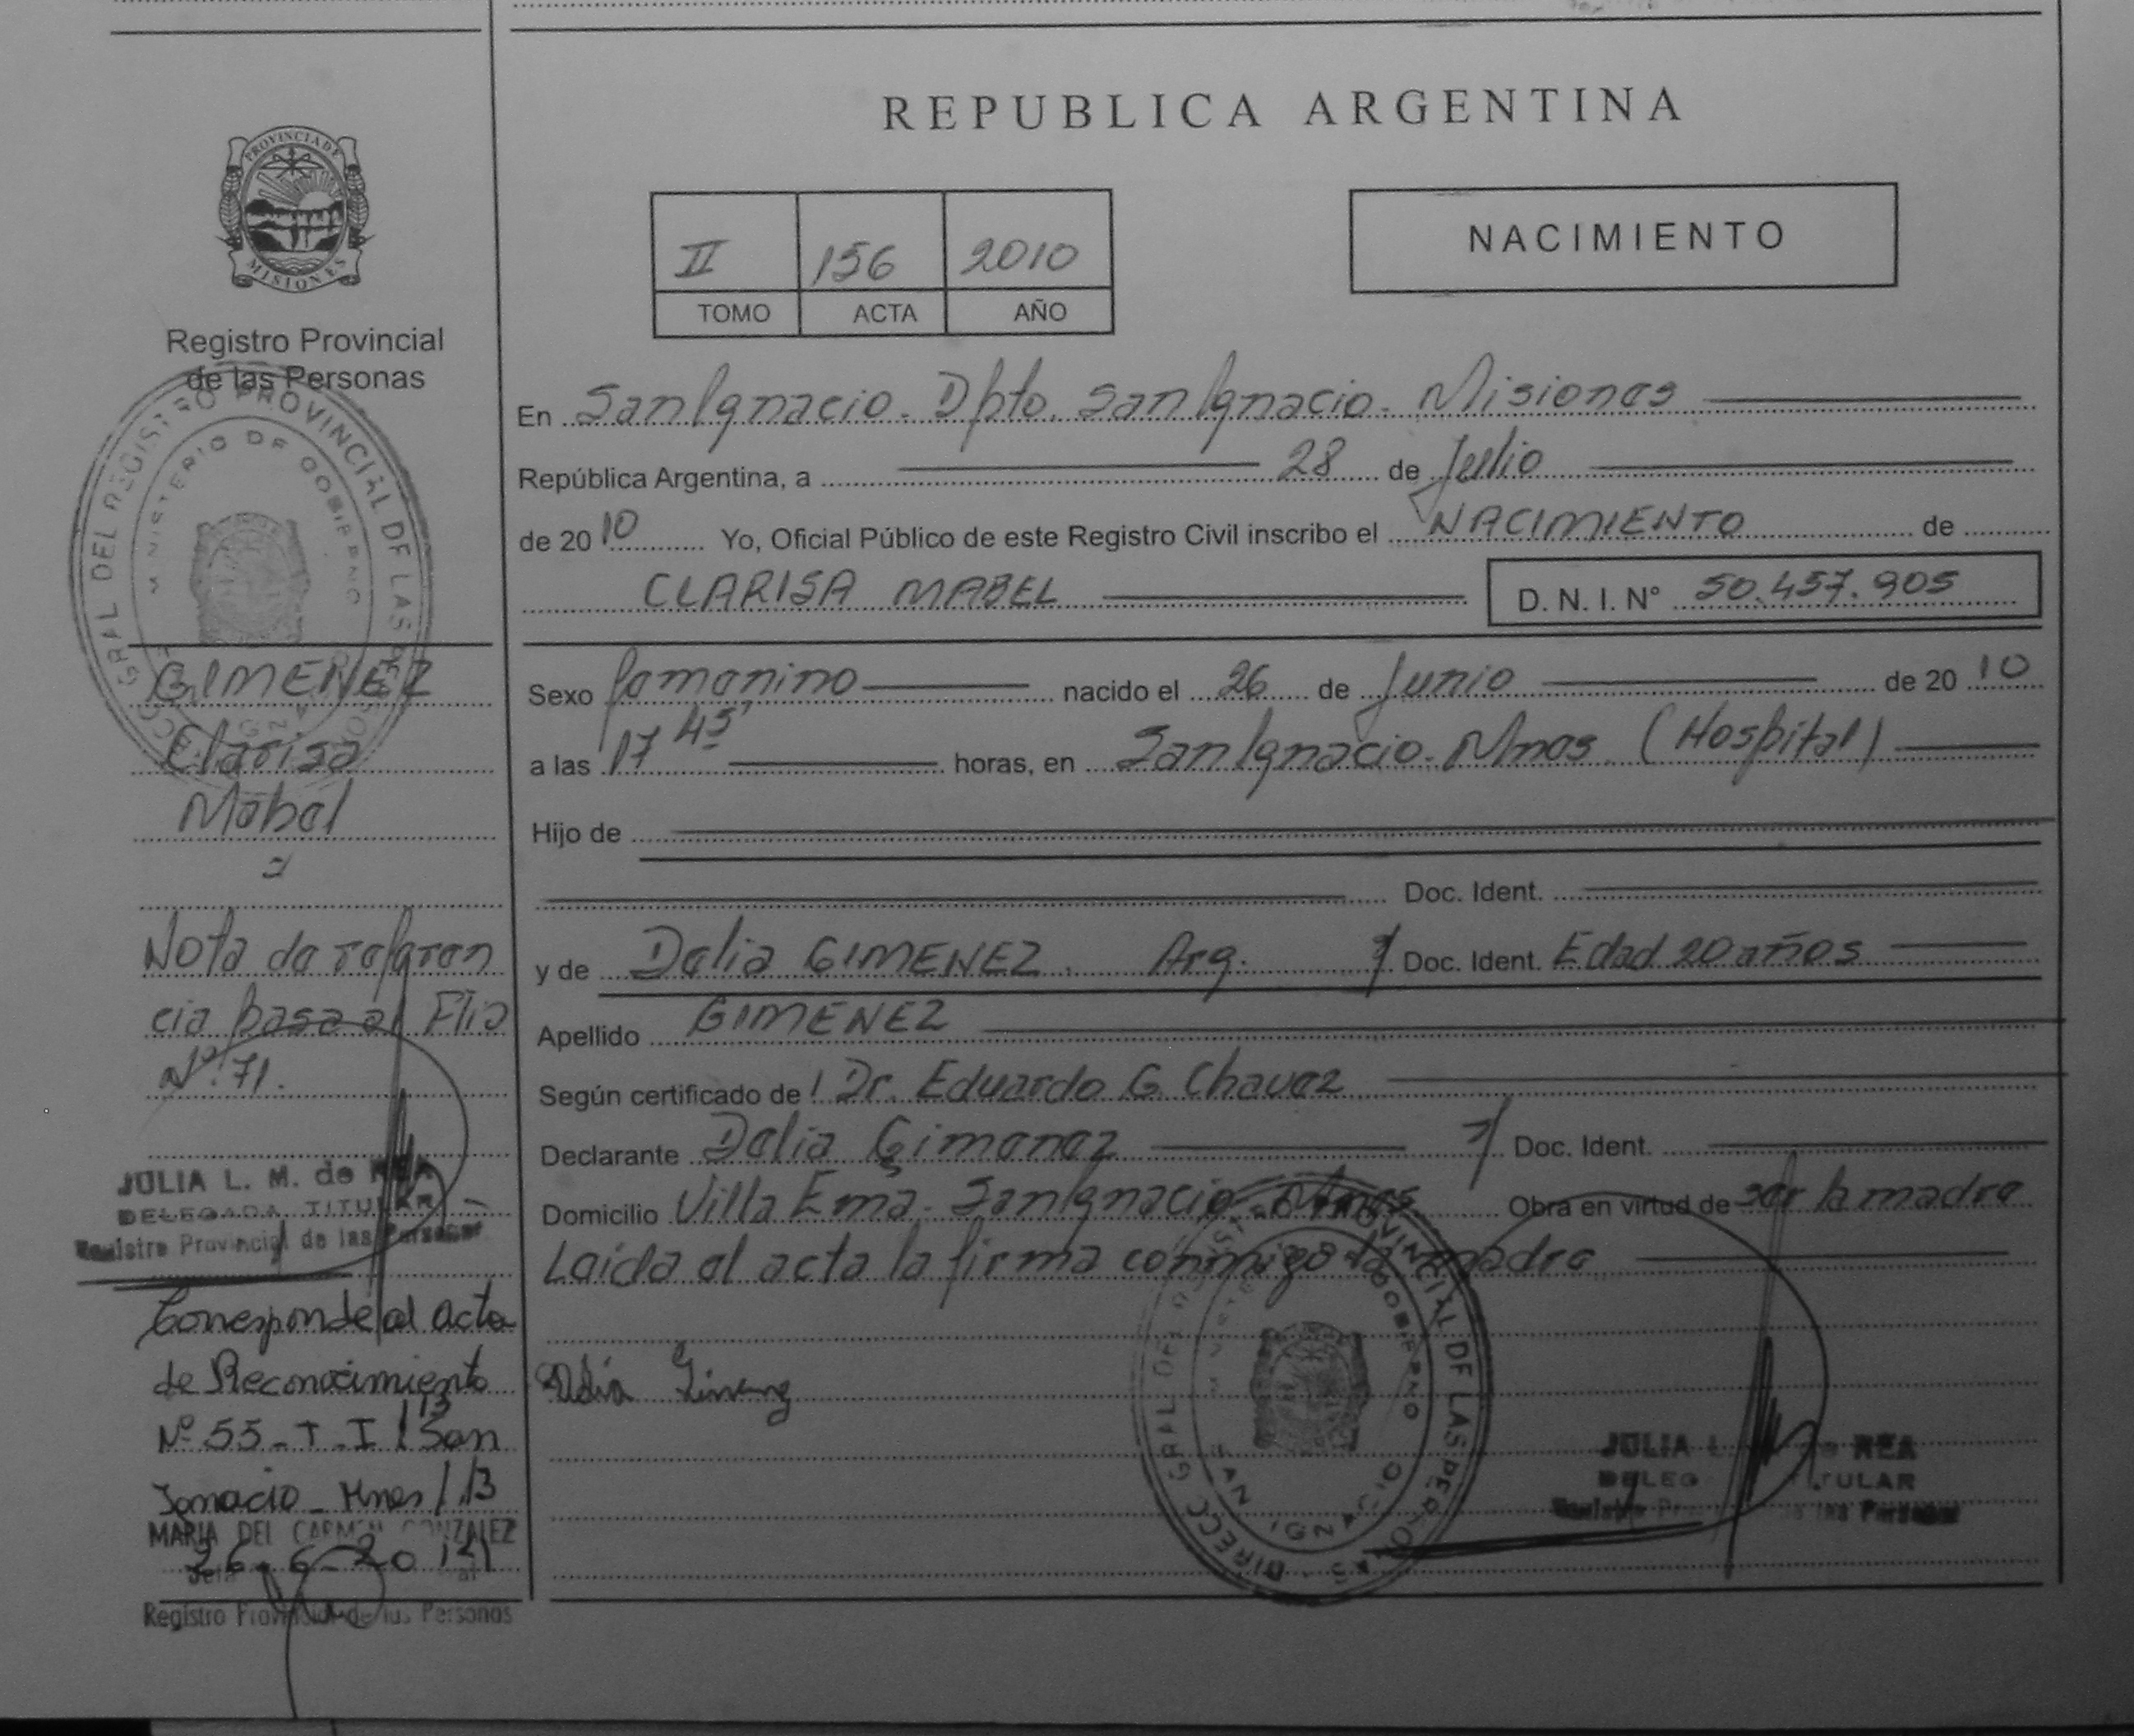 REPUBLICA ARGENTINA
PROVINCIA DE
MISIONES
Registro Provincial
de las Personas
II 156 2010
TOMO ACTA AÑO
NACIMIENTO
En San Ignacio. Dpto. San Ignacio. Misiones
República Argentina, a 28 de Julio
de 2010 Yo, Oficial Público de este Registro Civil inscribo el NACIMIENTO de
CLARISA MABEL D. N. I. N° 50.457.905
Sexo femenino nacido el 26 de Junio de 2010
a las 17 45' horas, en San Ignacio. Mnes (Hospital)
Hijo de
Doc. Ident.
y de Delia GIMENEZ. Arg. Doc. Ident. Edad 20 años
Apellido GIMENEZ
Según certificado de Dr. Eduardo G. Chavez
Declarante Delia Gimenez Doc. Ident.
Domicilio Villa Ema. San Ignacio. Mnes. Obra en virtud de ser la madre
Leida el acta la firma conmigo la madre
GIMENEZ
Clarisa
Mabel
Nota de referen
cia base al Flio
Nº 71.
JULIA L. M. de REA
DELEGADA TITULAR
Registro Provincial de las Personas
Corresponde al acta
de Reconocimiento
Nº 55 - T - I San
Ignacio - Mnes
MARIA DEL CARMEN GONZALEZ
26-6-20
Registro Provincial de las Personas
DIRECC GRAL DEL REGISTRO PROVINCIAL DE LAS PERSONAS
MINISTERIO DE GOBIERNO
SAN IGNACIO
JULIA REA
TITULAR